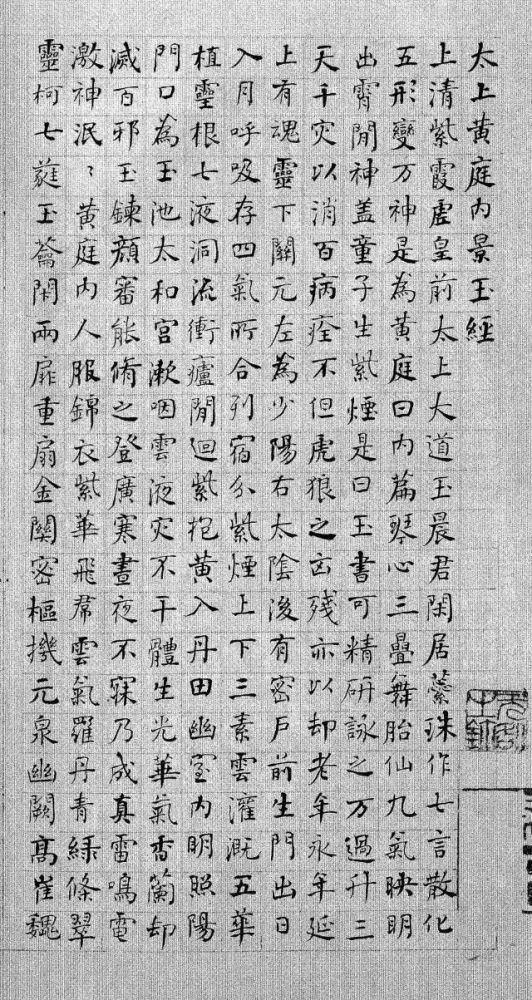 太上黄庭内景玉經
上清紫霞虛皇前太上大道玉晨君閑居蘂珠作七言散化
五形變万神是為黄庭曰内篇琴心三疊舞胎仙九氣映明
出霄閒神盖童子生紫煙是曰玉書可精研詠之万過升三
天千灾以消百病痊不但虎狼之凶残亦以却老年永年延
上有魂靈下關元左為少陽右太陰後有密戶前生門出日
入月呼吸存四氣所合列宿分紫煙上下三素雲灌溉五華
植靈根七液洞流衝廬閒迴紫抱黄入丹田幽室内明照陽
門口為玉池太和宮漱咽雲液灾不干體生光華氣香蘭却
滅百邪玉鍊顏審能脩之登廣寒晝夜不寐乃成真雷鳴電
激神泯〻黄庭内人服錦衣紫華飛帬雲氣羅丹青緑條翠
靈柯七蕤玉籥閇兩扉重扇金關密樞機元泉幽闕髙崔巍